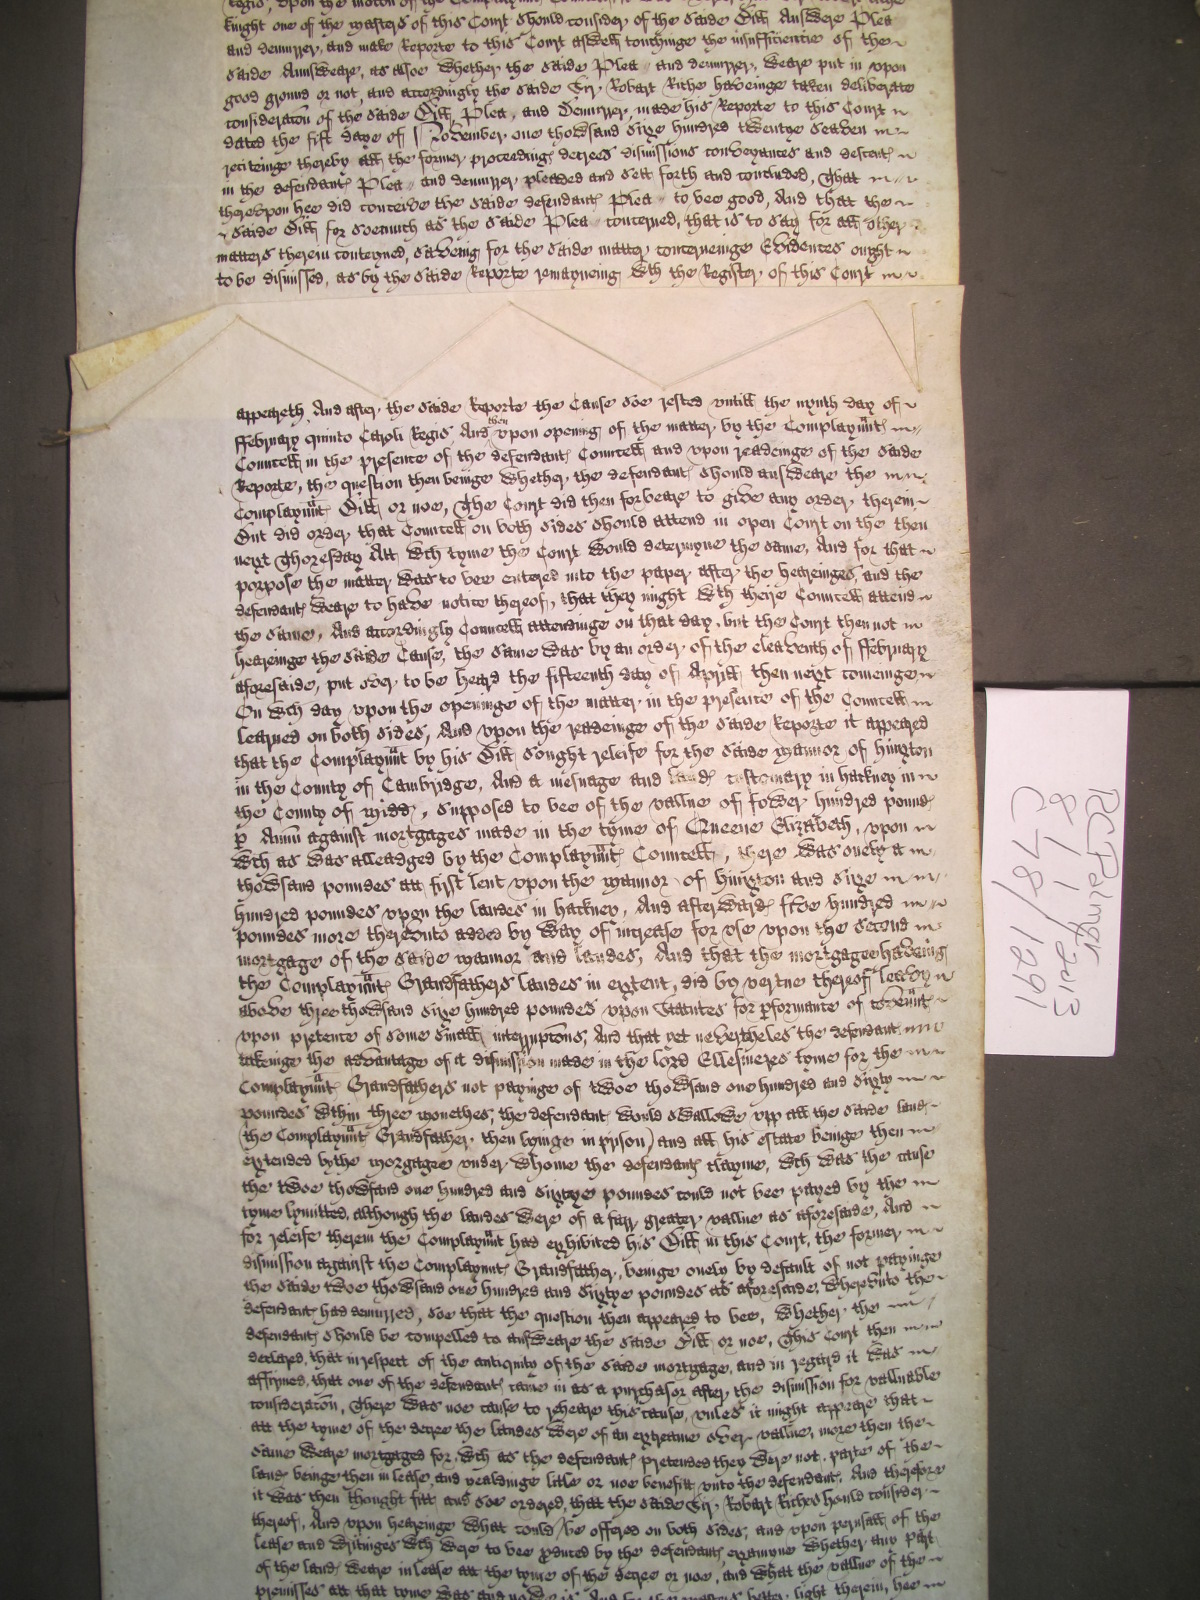 knight one of the Masters of this Court should consider of the saide Bill Answere Plea
and demurrer, and make Reporte to this Court aswell touchinge the insufficiencie of the
saide Aunsweare, as alsoe whether the saide Plea and demurrer, weare put in upon
good ground or not, and accordingly the saide Sir Robart Riche haveinge taken deliberate
consideracon of the saide Bill Plea, and Demurrer, made his Reporte to this Court
dated the fift daye of November one thowsand sixe hundred twentye seaven
reciteinge thereby all the former proceedings decrees dismissions conveyances and descents
in the defendants Plea and demurrer pleaded and sett forth and concluded, That
thereupon hee did conceive the saide defendants Plea to bee good, And that the
saide Bill for soemuch as the saide Plea concerned, that is to say for all other
matters therein conteyned, saveing for the saide matter concerneinge Evidences ought
to be dismissed, as by the saide Reporte remayneing wth the Register of this Court
appeareth And after the saide Reporte the Cause soe rested untill the nynth day of
ffebruary quinto Caroli Regis, And then upon opening of the matter by the Complaynnts
Councell in the presence of the defendants Councell and upon readeinge of the saide
Reporte, the question then beinge whether the defendants should answeare the
Complaynnts Bill or noe, The Court did then forbeare to give any order therein
But did order that Councell on both sides should attend in open Court on the then
next Thoresday Att wch tyme the Court would determyne the same, And for that
porpose the matter was to bee entered into the paper after the heareinges, and the
defendants weare to have notice thereof, that they might wth theire Councell attend
the same, And accordingly Councell attendinge on that day, but the Court then not
heareinge the saide Cause, the same was by an order of the eleaventh of ffebruary
aforesaide, put over to be heard the fifteenth day of Aprill then next comeinge
On wch day upon the openinge of the matter in the presence of the Councell
learned on both sides, And upon the readeinge of the saide Reporte it appeared
that the Complaynnt by his Bill sought releife for the saide Mannor of hinxton
in the County of Cambridge, And a mesuage and lands customary in hackney in
the County of Midd, supposed to bee of the vallue of fower hundred pounds
p Annu against mortgages made in the tyme of Queene Elizabeth, upon
wch as was alleadged by the Complaynnts Councell, there was onely a
thowsand poundes att first lent upon the Mannor of hinxton and sixe
hundred poundes upon the landes in hackney, And afterwards five hundred
poundes more thereunto added by way of increase for use upon the second
mortgage of the saide Mannor and landes, And that the mortgagee haveing
the Complaynnts Grandfathers landes in extent, did by vertue thereof leavy
above three thowsand sixe hundred poundes upon Statutes for pformance of covennts
upon pretence of some small interruptons, And that yet nevertheles the defendants
takeinge the advantage of a dismission made in the lord Ellesmeres tyme for the
Complaynnts Grandfathers not payinge of twoe thowsand one hundred and sixty
poundes wthin three monethes, the defendants would swallowe upp all the saide lands
(the Complaynnts Grandfather then lyinge in pryson) and all his estate beinge then
extended by the mortgagee under whome the defendants clayme, wch was the cause
the twoe thowsand one hundred and sixtye poundes could not bee payed by the
tyme lymitted, although the landes were of a farr greater vallue as aforesaide, And
for releife therein the Complaynnt had exhibited his Bill in this Court, the former
dismission against the Complaynnts Grandfather, beinge onely by default of not payinge
the saide twoe thowsand one hundred and sixtye poundes as aforesaide, whereunto the
defendants had demurred, soe that the question then appeared to bee, whether the
defendants should be compelled to answeare the saide Bill or noe, This Court then
declared, that in respect of the antiquity of the saide mortgage, and in regard it was
affirmed, that one of the defendants came in as a purchasor after the dismission for valluable
consideracon, There was noe cause to reheare this cause, unles it might appeare that
att the tyme of the decree the landes were of an extreame over vallue, more then the
same weare mortgaged for, wch as the defendants pretended they were not, parte of the
lands beinge then in lease, and yealdinge litle or noe benefitt unto the defendants, And therefore
it was then thought fitt and soe ordered, that the saide Sir Robart Riche should consider
thereof, And upon heareinge what could be offered on both sides, and upon perusall of the
lease and writinges wch were to bee pduced by the defendants, examyne whether any part
of the lands weare in lease att the tyme of the decree or noe, and what the vallue of the
premisses att that tyme was and light therein, hee
RCPalmer
8/1/2013
C78/1291